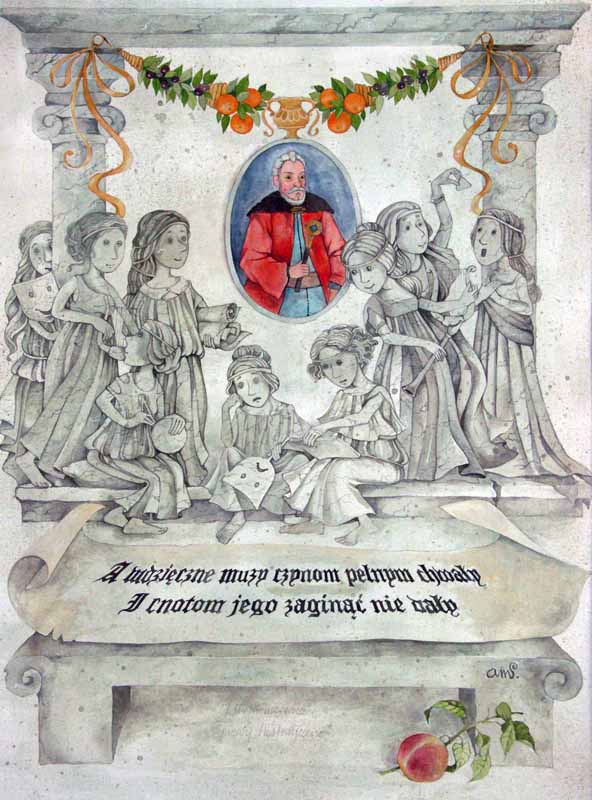 A wdzięczne muzy czynom pełnym chwały
I cnotom jego zaginąć nie dały
ams.